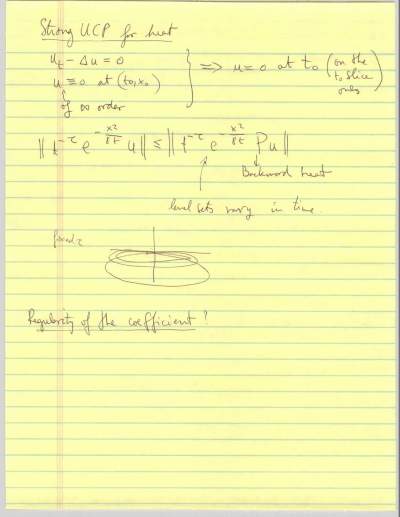 Strong UCP for heat
u_t - Δu = 0
u ≡ 0 at (t_0, x_0)
of ∞ order
⟹ u = 0 at t_0 (on the t_0 slice only)
‖ t^{-τ} e^{-x²/8t} u ‖ ≤ ‖ t^{-τ} e^{-x²/8t} P u ‖
Backward heat
level sets vary in time
fixed τ
Regularity of the coefficient?